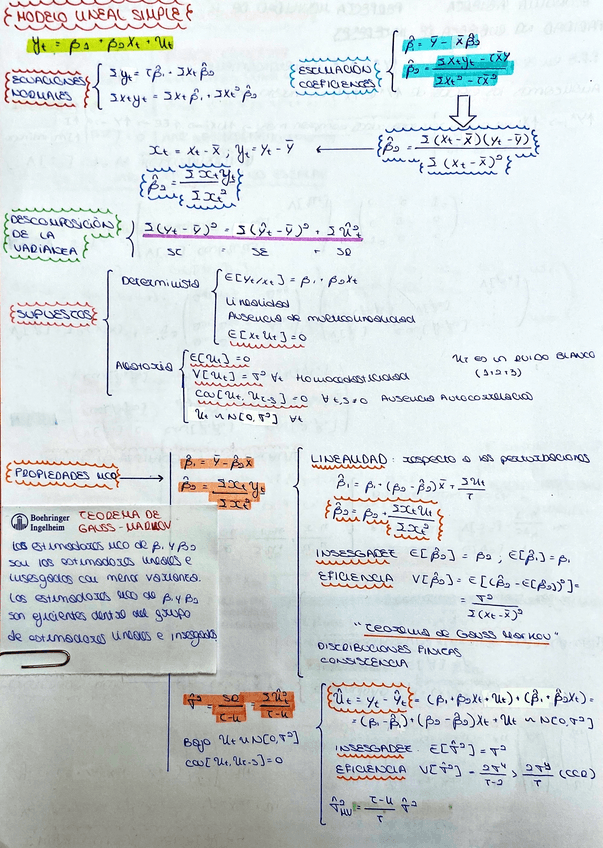 MODELO LINEAL SIMPLE
Yt = β1 + β2Xt + Ut
ECUACIONES NORMALES
ΣYt = Tβ̂1 + ΣXt β̂2
ΣXtYt = ΣXt β̂1 + ΣXt² β̂2
ESTIMACIÓN COEFICIENTES
β̂1 = Ȳ - X̄β̂2
β̂2 = ΣXtYt - TX̄Ȳ / ΣXt² - TX̄²
β̂2 = Σ(Xt - X̄)(Yt - Ȳ) / Σ(Xt - X̄)²
xt = Xt - X̄ ; yt = Yt - Ȳ
β̂2 = Σxtyt / Σxt²
DESCOMPOSICIÓN DE LA VARIANZA
Σ(Yt - Ȳ)² = Σ(Ŷt - Ȳ)² + ΣÛt²
SC = SE + SR
SUPUESTOS
Determinista
E[Yt/Xt] = β1 + β2Xt
Linealidad
Ausencia de multicolinealidad
E[XtUt] = 0
Aleatorio
E[Ut] = 0
V[Ut] = σ² ∀t Homocedasticidad
Cov[Ut, Ut-s] = 0 ∀t,s ≠ 0 Ausencia Autocorrelación
Ut ~ N[0, σ²] ∀t
Ut es un ruido blanco
(1+2+3)
PROPIEDADES MCO
β̂1 = Ȳ - β̂2X̄
β̂2 = Σxtyt / Σxt²
LINEALIDAD: respecto a las perturbaciones
β̂1 = β1 + (β2 - β̂2)X̄ + ΣUt / T
β̂2 = β2 + ΣxtUt / Σxt²
INSESGADEZ E[β̂2] = β2 ; E[β̂1] = β1
EFICIENCIA V[β̂2] = E[(β̂2 - E[β̂2])²] =
= σ² / Σ(Xt - X̄)²
"Teorema de Gauss Markov"
DISTRIBUCIONES FINITAS
CONSISTENCIA
Boehringer Ingelheim
TEOREMA DE GAUSS-MARKOV
Los estimadores MCO de β1 y β2
son los estimadores lineales e
insesgados con menor varianza.
Los estimadores MCO de β1 y β2
son eficientes dentro del grupo
de estimadores lineales e insesgados
σ̂² = SR / T-k = ΣÛt² / T-k
Bajo Ut ~ N[0, σ²]
cov[Ut, Ut-s] = 0
Ût = Yt - Ŷt = (β1 + β2Xt + Ut) + (β̂1 + β̂2Xt) =
= (β1 - β̂1) + (β2 - β̂2)Xt + Ut ~ N[0, σ²]
INSESGADEZ E[σ̂²] = σ²
EFICIENCIA V[σ̂²] = 2σ⁴ / T-2 > 2σ⁴ / T (CCR)
σ̂²MV = T-k / T σ̂²